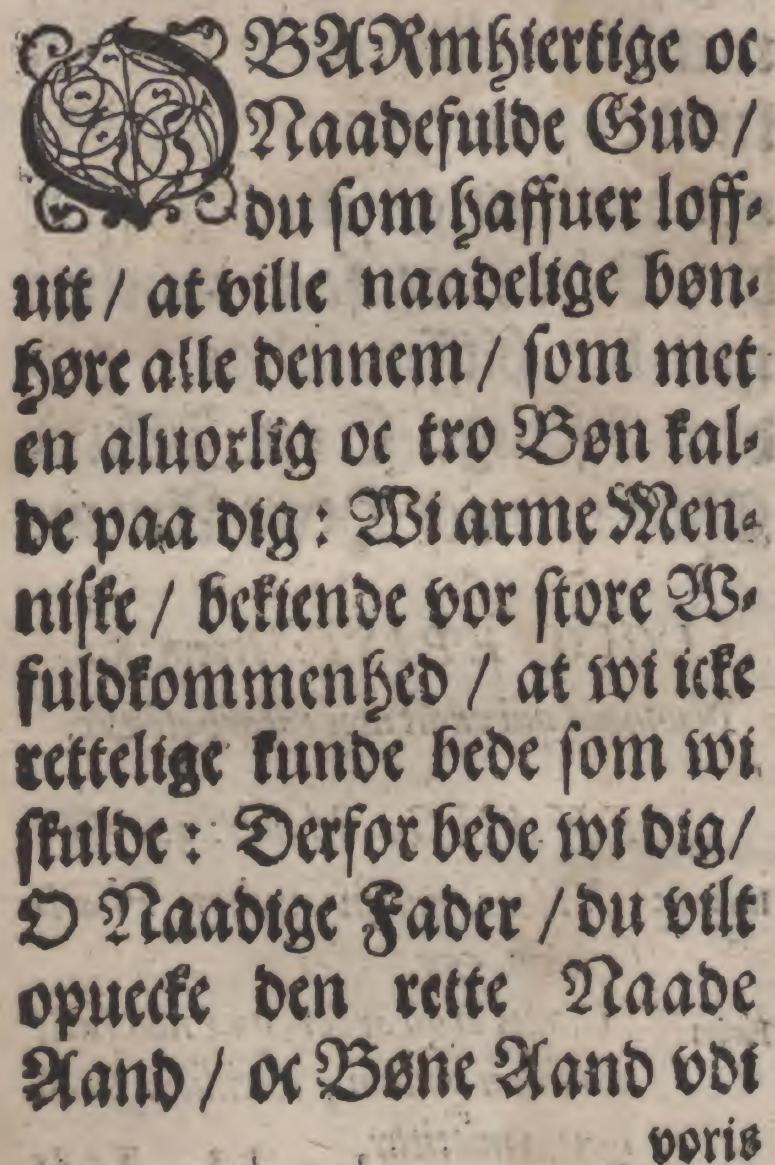 O BARmhiertige oc
Naadefulde Gud /
du som haffuer loff-
uit / at ville naadelige bøn-
høre alle dennem / som met
en aluorlig oc tro Bøn kal-
de paa dig : Wi arme Men-
niske / bekiende vor store W-
fuldkommenhed / at wi icke
rettelige kunde bede som wi
skulde : Derfor bede wi dig /
O Naadige Fader / du vilt
opuecke den rette Naade
Aand / oc Bøne Aand vdi
voris